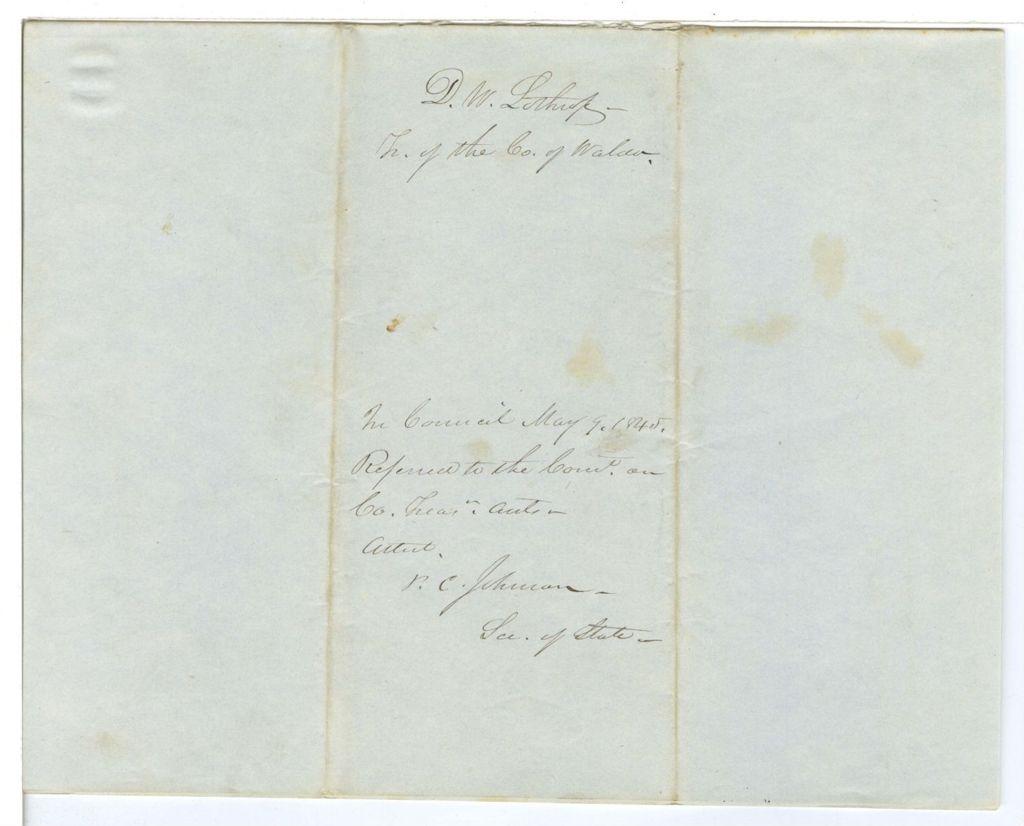 D. W. Lothrop
Tr. of the Co. of Waldo.
In Council May 9. 1840.
Referred to the Comt. on
Co. Treasr. Accts
Attest.
P. C. Johnson
Sec. of State